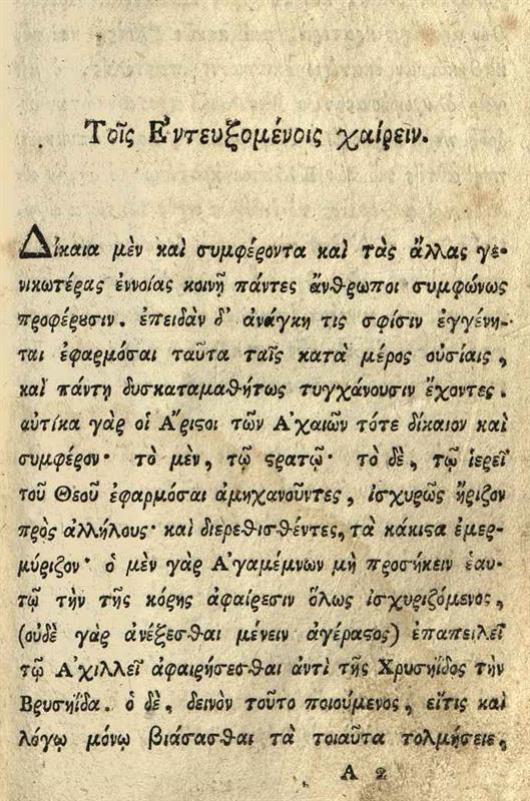 Τοῖς Ἐντευξομένοις χαίρειν.
Δίκαια μὲν καὶ συμφέροντα καὶ τὰς ἄλλας γε-
νικωτέρας ἐννοίας κοινῇ πάντες ἄνθρωποι συμφώνως
προφέρȣσιν. ἐπειδὰν δ' ἀνάγκη τις σφίσιν ἐγγένη-
ται ἐφαρμόσαι ταῦτα ταῖς κατὰ μέρος οὐσίαις,
καὶ πάντη δυσκαταμαθήτως τυγχάνουσιν ἔχοντες.
αὐτίκα γὰρ οἱ Ἄριϛοι τῶν Ἀχαιῶν τότε δίκαιον καὶ
συμφέρον· τὸ μὲν, τῷ ϛρατῷ· τὸ δὲ, τῷ ἱερεῖ
τοῦ Θεοῦ ἐφαρμόσαι ἀμηχανοῦντες, ἰσχυρῶς ἤριζον
πρὸς ἀλλήλους· καὶ διερεθισθέντες, τὰ κάκιϛα ἐμερ-
μύριζον· ὁ μὲν γὰρ Ἀγαμέμνων μὴ προσήκειν ἑαυ-
τῷ τὴν τῆς κόρης ἀφαίρεσιν ὅλως ἰσχυριζόμενος,
(οὐδὲ γὰρ ἀνέξεσθαι μένειν ἀγέραϛος) ἐπαπειλεῖ
τῷ Ἀχιλλεῖ ἀφαιρήσεσθαι ἀντὶ τῆς Χρυσηΐδος τὴν
Βρυσηΐδα. ὁ δὲ, δεινὸν τοῦτο ποιούμενος, εἴτις καὶ
λόγῳ μόνῳ βιάσασθαι τὰ τοιαῦτα τολμήσειε,
A 2